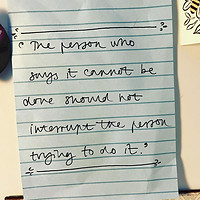 "The person who
says it cannot be
done should not
interrupt the person
trying to do it."